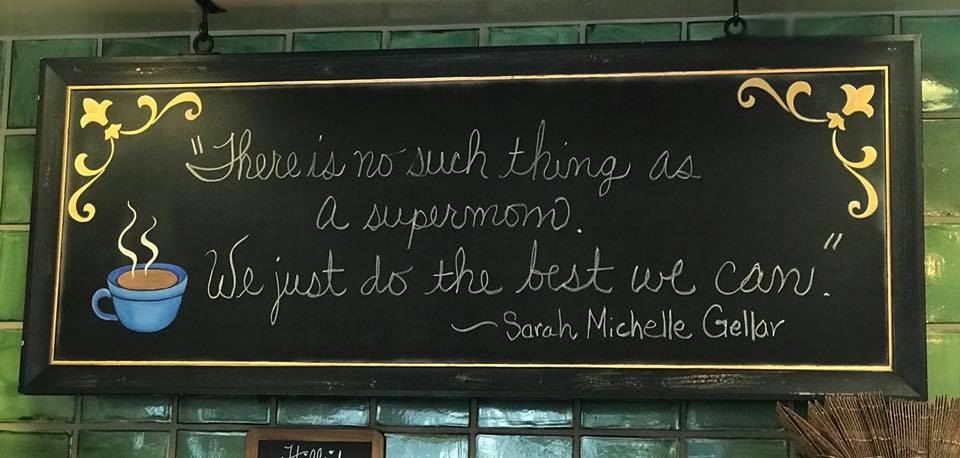 "There is no such thing as
a supermom.
We just do the best we can."
~Sarah Michelle Gellar